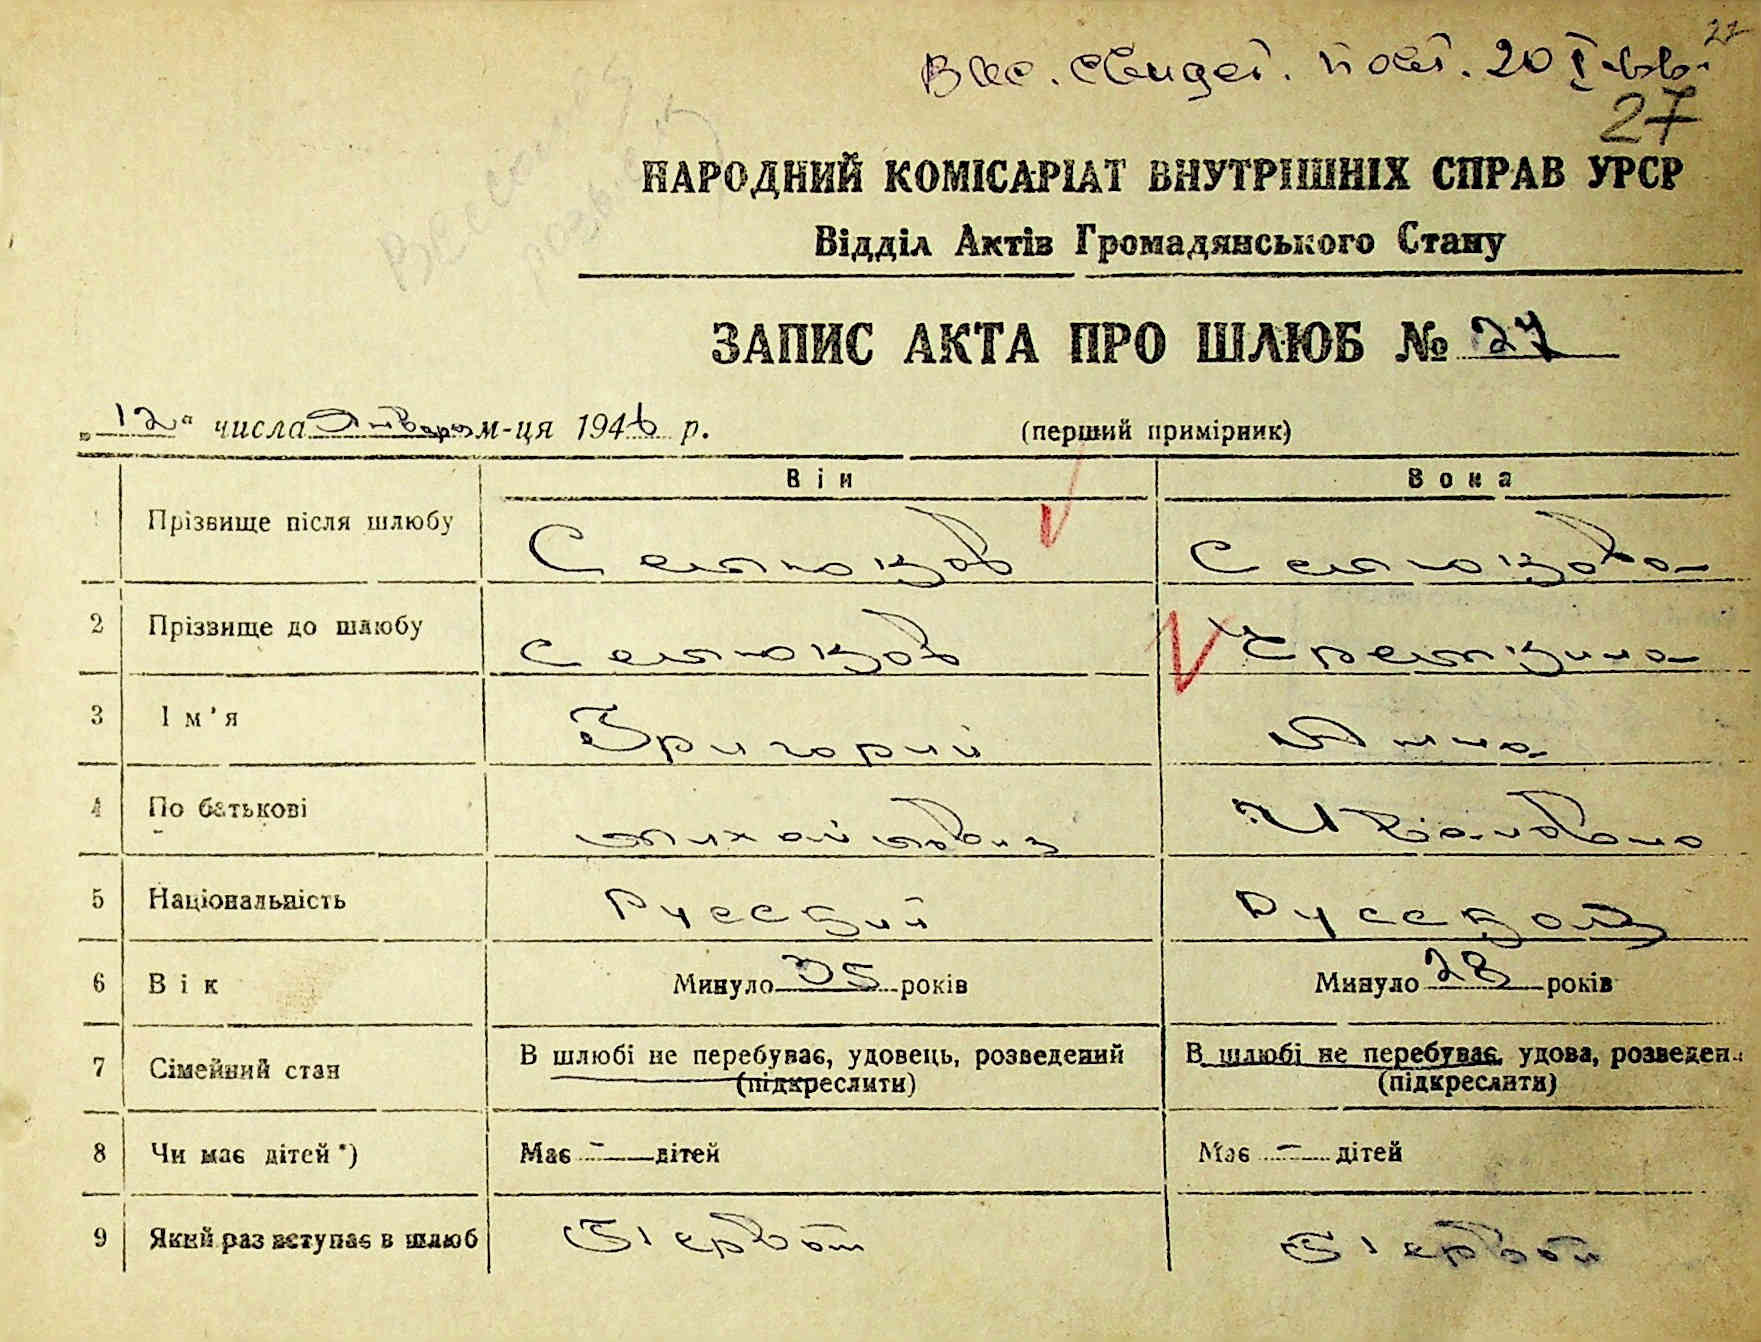 27
свидет. 20 I-66.
27
НАРОДНИЙ КОМІСАРІАТ ВНУТРІШНІХ СПРАВ УРСР
Відділ Актів Громадянського Стану
ЗАПИС АКТА ПРО ШЛЮБ № 27
„12" числа Января м-ця 1946 р. (перший примірник)
Він Вона
1 Прізвище після шлюбу Селюков Селюкова
2 Прізвище до шлюбу Селюков
3 Ім'я Григорий Анна
4 По батькові Михайлович Ивановна
5 Національність Русский Русская
6 Вік Минуло 35 років Минуло 28 років
7 Сімейний стан В шлюбі не перебуває, удовець, розведений (підкреслити) В шлюбі не перебуває, удова, розведен. (підкреслити)
8 Чи має дітей *) Має – дітей Має – дітей
9 Який раз вступає в шлюб Первый Первый